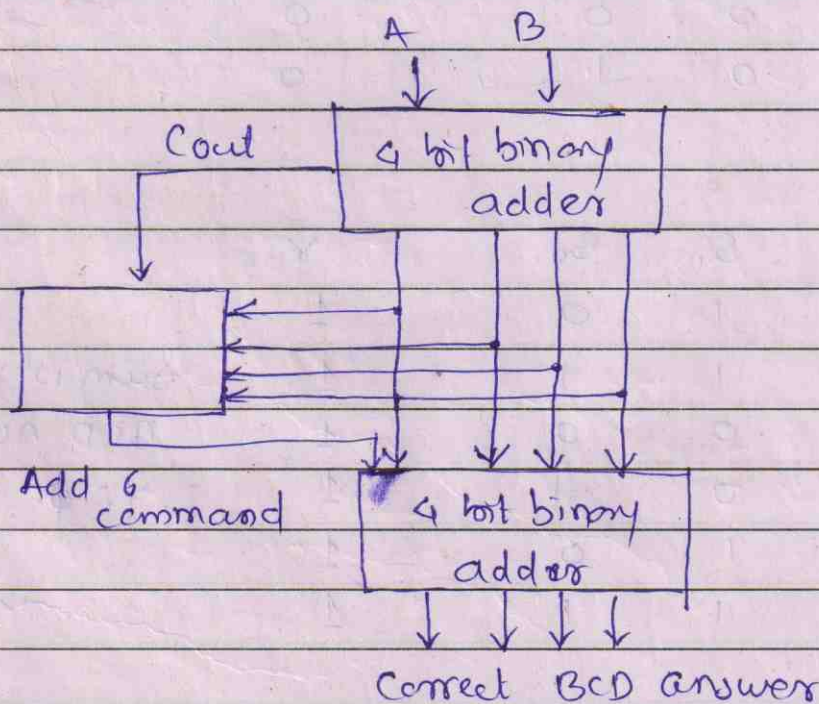 A B
Cout
4 bit binary
adder
Add 6
command
4 bit binary
adder
Correct BCD answer